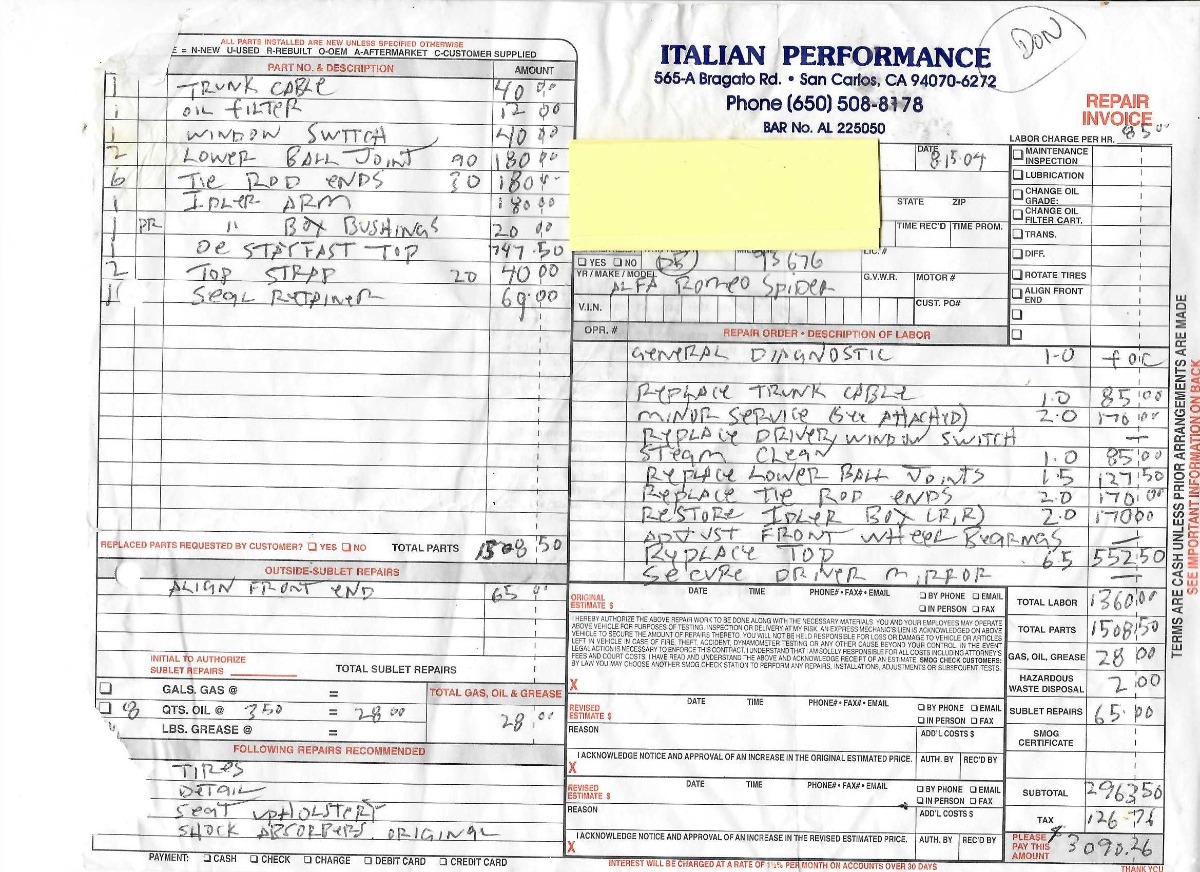 ALL PARTS INSTALLED ARE NEW UNLESS SPECIFIED OTHERWISE
E = N-NEW U-USED R-REBUILT O-OEM A-AFTERMARKET C-CUSTOMER SUPPLIED
PART NO. & DESCRIPTION AMOUNT
1 TRUNK CABLE 40 00
1 OIL FILTER 12 00
1 WINDOW SWITCH 40 00
2 LOWER BALL JOINT 90 180 00
6 TIE ROD ENDS 30 180
1 IDLER ARM 180 00
1 PR " BOX BUSHINGS 20 00
1 OE STAYFAST TOP 747.50
2 TOP STRAP 20 40 00
1 SEAL RETAINER 69.00
REPLACED PARTS REQUESTED BY CUSTOMER? YES NO TOTAL PARTS 1508 50
OUTSIDE-SUBLET REPAIRS
ALIGN FRONT END 65 00
INITIAL TO AUTHORIZE
SUBLET REPAIRS
TOTAL SUBLET REPAIRS
GALS. GAS @ =
TOTAL GAS, OIL & GREASE
8 QTS. OIL @ 3 50 = 28 00
28 00
LBS. GREASE @ =
FOLLOWING REPAIRS RECOMMENDED
TIRES
DETAIL
SEAT UPHOLSTERY
SHOCK ABSORBERS ORIGINAL
PAYMENT: CASH CHECK CHARGE DEBIT CARD CREDIT CARD
DON
ITALIAN PERFORMANCE
565-A Bragato Rd. • San Carlos, CA 94070-6272
Phone (650) 508-8178
BAR No. AL 225050
REPAIR
INVOICE
LABOR CHARGE PER HR. 85 00
DATE 8.15.04
STATE ZIP
TIME REC'D TIME PROM.
YES NO 93676
YR / MAKE / MODEL G.V.W.R. MOTOR #
ALFA ROMEO SPIDER
V.I.N. CUST. PO#
MAINTENANCE
INSPECTION
LUBRICATION
CHANGE OIL
GRADE:
CHANGE OIL
FILTER CART.
TRANS.
DIFF.
ROTATE TIRES
ALIGN FRONT
END
OPR. # REPAIR ORDER • DESCRIPTION OF LABOR
GENERAL DIAGNOSTIC 1.0 FOC
REPLACE TRUNK CABLE 1.0 85 00
MINOR SERVICE (SEE ATTACHED) 2.0 170 00
REPLACE DRIVER WINDOW SWITCH —
STEAM CLEAN 1.0 85 00
REPLACE LOWER BALL JOINTS 1.5 127.50
REPLACE TIE ROD ENDS 2.0 170 00
RESTORE IDLER BOX (R,R) 2.0 170 00
ADJUST FRONT WHEEL BEARINGS —
REPLACE TOP 6.5 552 50
SECURE DRIVER MIRROR —
ORIGINAL
ESTIMATE $
DATE TIME PHONE# • FAX# • EMAIL
BY PHONE EMAIL
IN PERSON FAX
I HEREBY AUTHORIZE THE ABOVE REPAIR WORK TO BE DONE ALONG WITH THE NECESSARY MATERIALS. YOU AND YOUR EMPLOYEES MAY OPERATE
ABOVE VEHICLE FOR PURPOSES OF TESTING, INSPECTION OR DELIVERY AT MY RISK. AN EXPRESS MECHANIC'S LIEN IS ACKNOWLEDGED ON ABOVE
VEHICLE TO SECURE THE AMOUNT OF REPAIRS THERETO. YOU WILL NOT BE HELD RESPONSIBLE FOR LOSS OR DAMAGE TO VEHICLE OR ARTICLES
LEFT IN VEHICLE IN CASE OF FIRE, THEFT, ACCIDENT, DYNAMOMETER TESTING OR ANY OTHER CAUSE BEYOND YOUR CONTROL. IN THE EVENT
LEGAL ACTION IS NECESSARY TO ENFORCE THIS CONTRACT, I UNDERSTAND THAT I AM SOLELY RESPONSIBLE FOR ALL COSTS INCLUDING ATTORNEYS
FEES AND COURT COSTS. I HAVE READ AND UNDERSTAND THE ABOVE AND ACKNOWLEDGE RECEIPT OF AN ESTIMATE. SMOG CHECK CUSTOMERS:
BY LAW YOU MAY CHOOSE ANOTHER SMOG CHECK STATION TO PERFORM ANY REPAIRS, INSTALLATIONS, ADJUSTMENTS OR SUBSEQUENT TESTS.
X
REVISED
ESTIMATE $
DATE TIME PHONE# • FAX# • EMAIL
BY PHONE EMAIL
IN PERSON FAX
REASON ADD'L COSTS $
I ACKNOWLEDGE NOTICE AND APPROVAL OF AN INCREASE IN THE ORIGINAL ESTIMATED PRICE. AUTH. BY REC'D BY
X
REVISED
ESTIMATE $
DATE TIME PHONE# • FAX# • EMAIL
BY PHONE EMAIL
IN PERSON FAX
REASON ADD'L COSTS $
I ACKNOWLEDGE NOTICE AND APPROVAL OF AN INCREASE IN THE REVISED ESTIMATED PRICE. AUTH. BY REC'D BY
X
TOTAL LABOR 1360 00
TOTAL PARTS 1508 50
GAS, OIL, GREASE 28 00
HAZARDOUS
WASTE DISPOSAL 2 00
SUBLET REPAIRS 65.00
SMOG
CERTIFICATE
SUBTOTAL 2963 50
TAX 126.76
PLEASE
PAY THIS
AMOUNT $ 3090.26
INTEREST WILL BE CHARGED AT A RATE OF 1½% PER MONTH ON ACCOUNTS OVER 30 DAYS
THANK YOU
TERMS ARE CASH UNLESS PRIOR ARRANGEMENTS ARE MADE
SEE IMPORTANT INFORMATION ON BACK